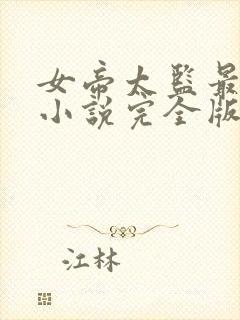 女帝太監最
小說完全版
江林